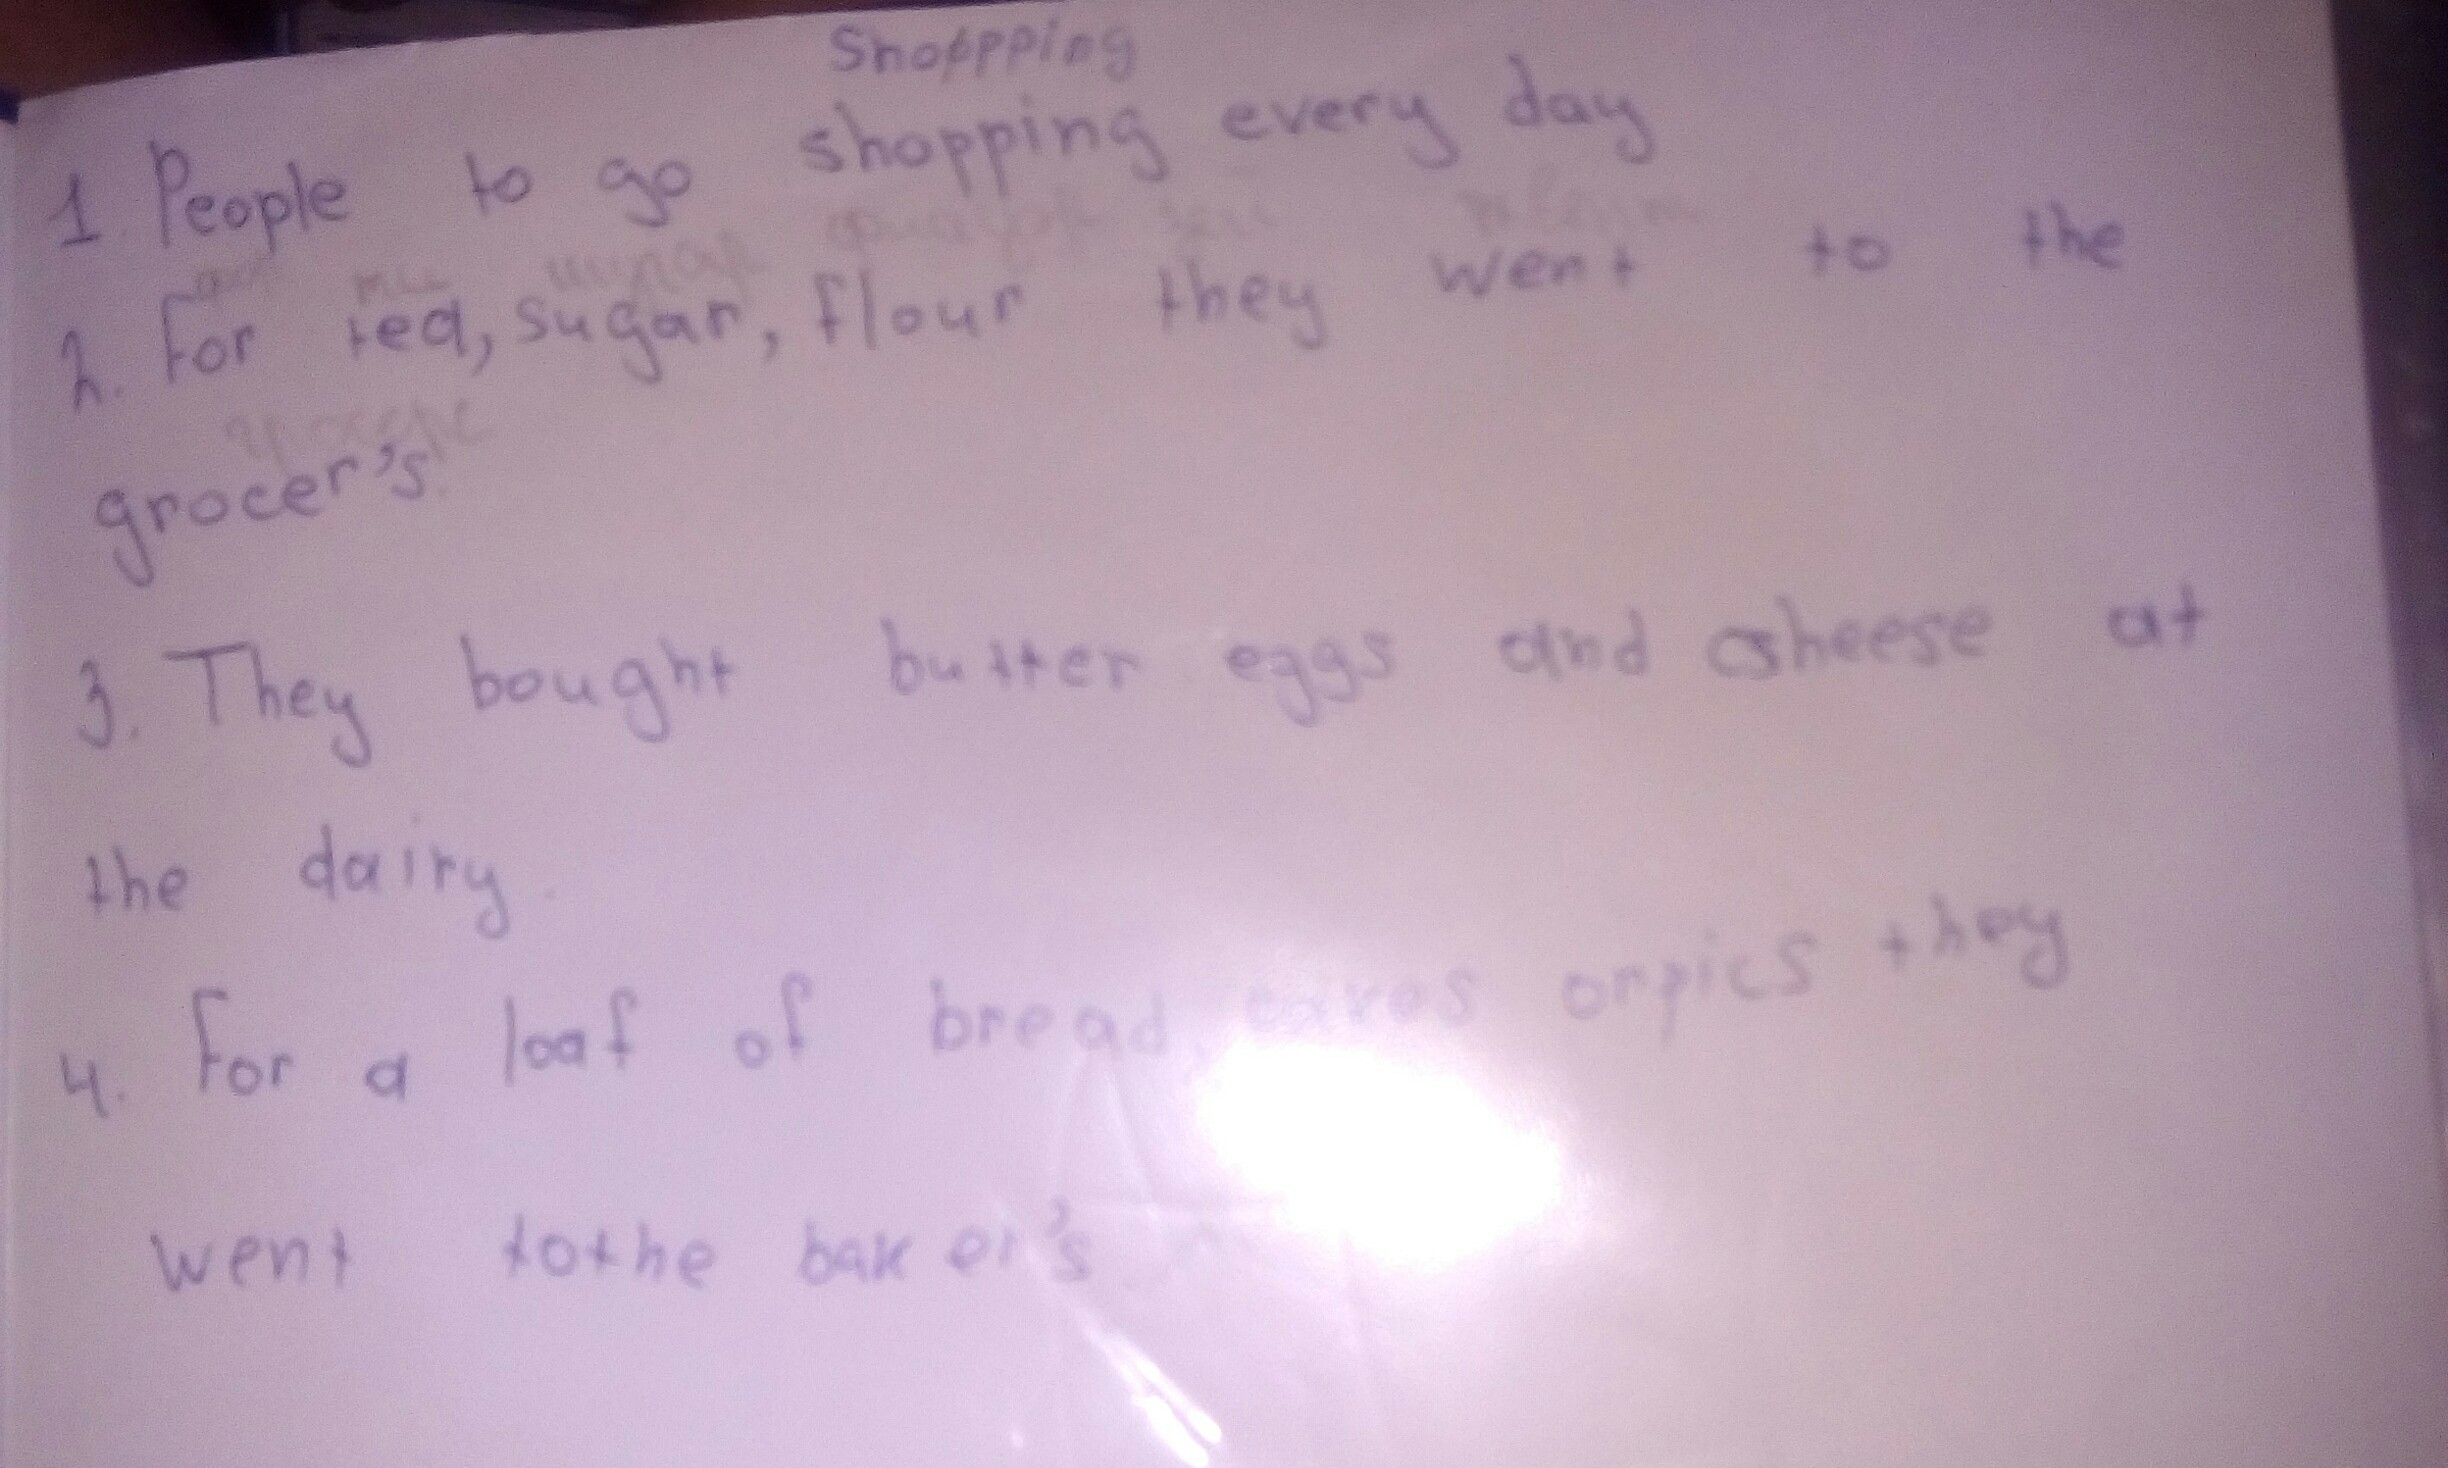 Shoppping
1. People to go shopping every day
2. For tea, sugar, flour they went to the
grocer's.
3. They bought butter eggs and cheese at
the dairy.
4. For a loaf of bread, orpies they
went tothe baker's